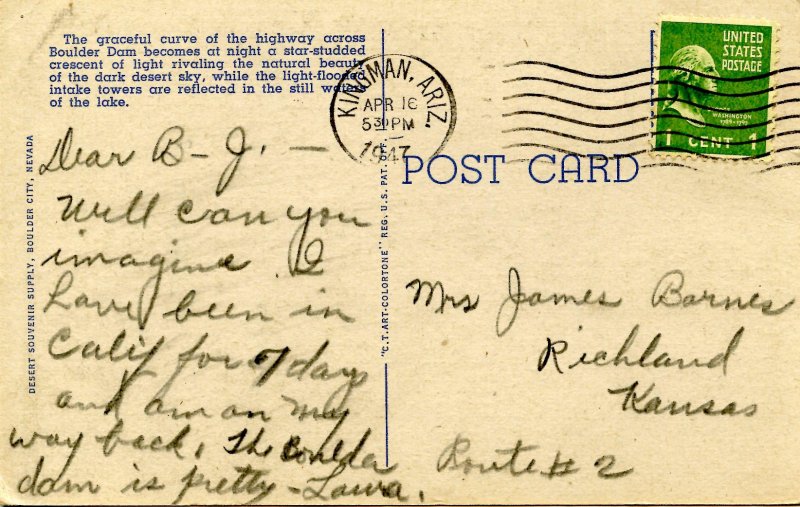 The graceful curve of the highway across
Boulder Dam becomes at night a star-studded
crescent of light rivaling the natural beauty
of the dark desert sky, while the light-flooded
intake towers are reflected in the still waters
of the lake.
KINGMAN, ARIZ.
APR 16
5 30 PM
1947
UNITED
STATES
POSTAGE
WASHINGTON
1789-1797
1 CENT 1
POST CARD
DESERT SOUVENIR SUPPLY, BOULDER CITY, NEVADA
"C.T. ART-COLORTONE" REG. U.S. PAT. OFF.
Dear B-J. -
Well can you
imagine I
have been in
Calif for 7 days
and am on my
way back. The Boulda
dam is pretty - Laura.
Mrs James Barnes
Richland
Kansas
Route # 2